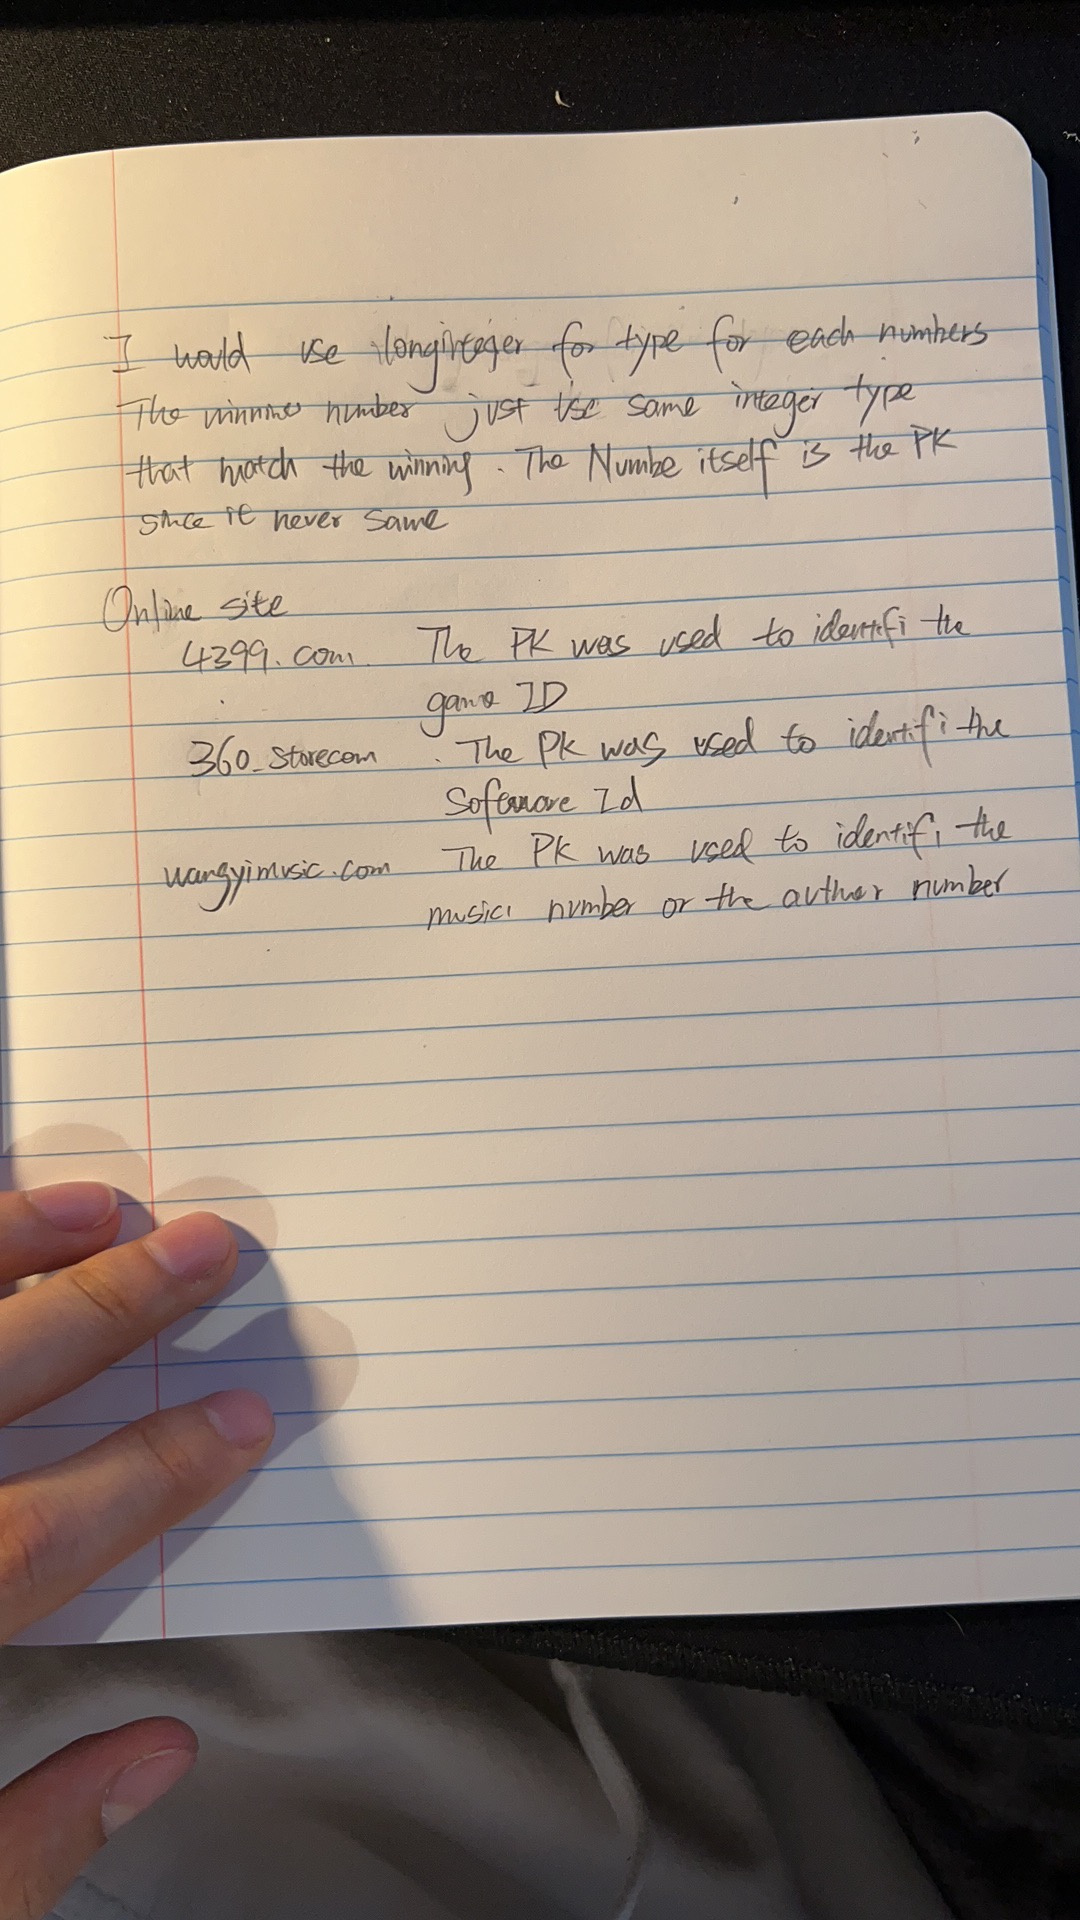 I would use longinteger for type for each numbers
The winnino number just use same integer type
that match the winning. The Numbe itself is the PK
since it never same
Online site
4399.com. The PK was used to identifi the
game ID
360_Storecom. The PK was used to identifi the
Software Id
wangyimusic.com The PK was used to identifi the
music number or the auther number